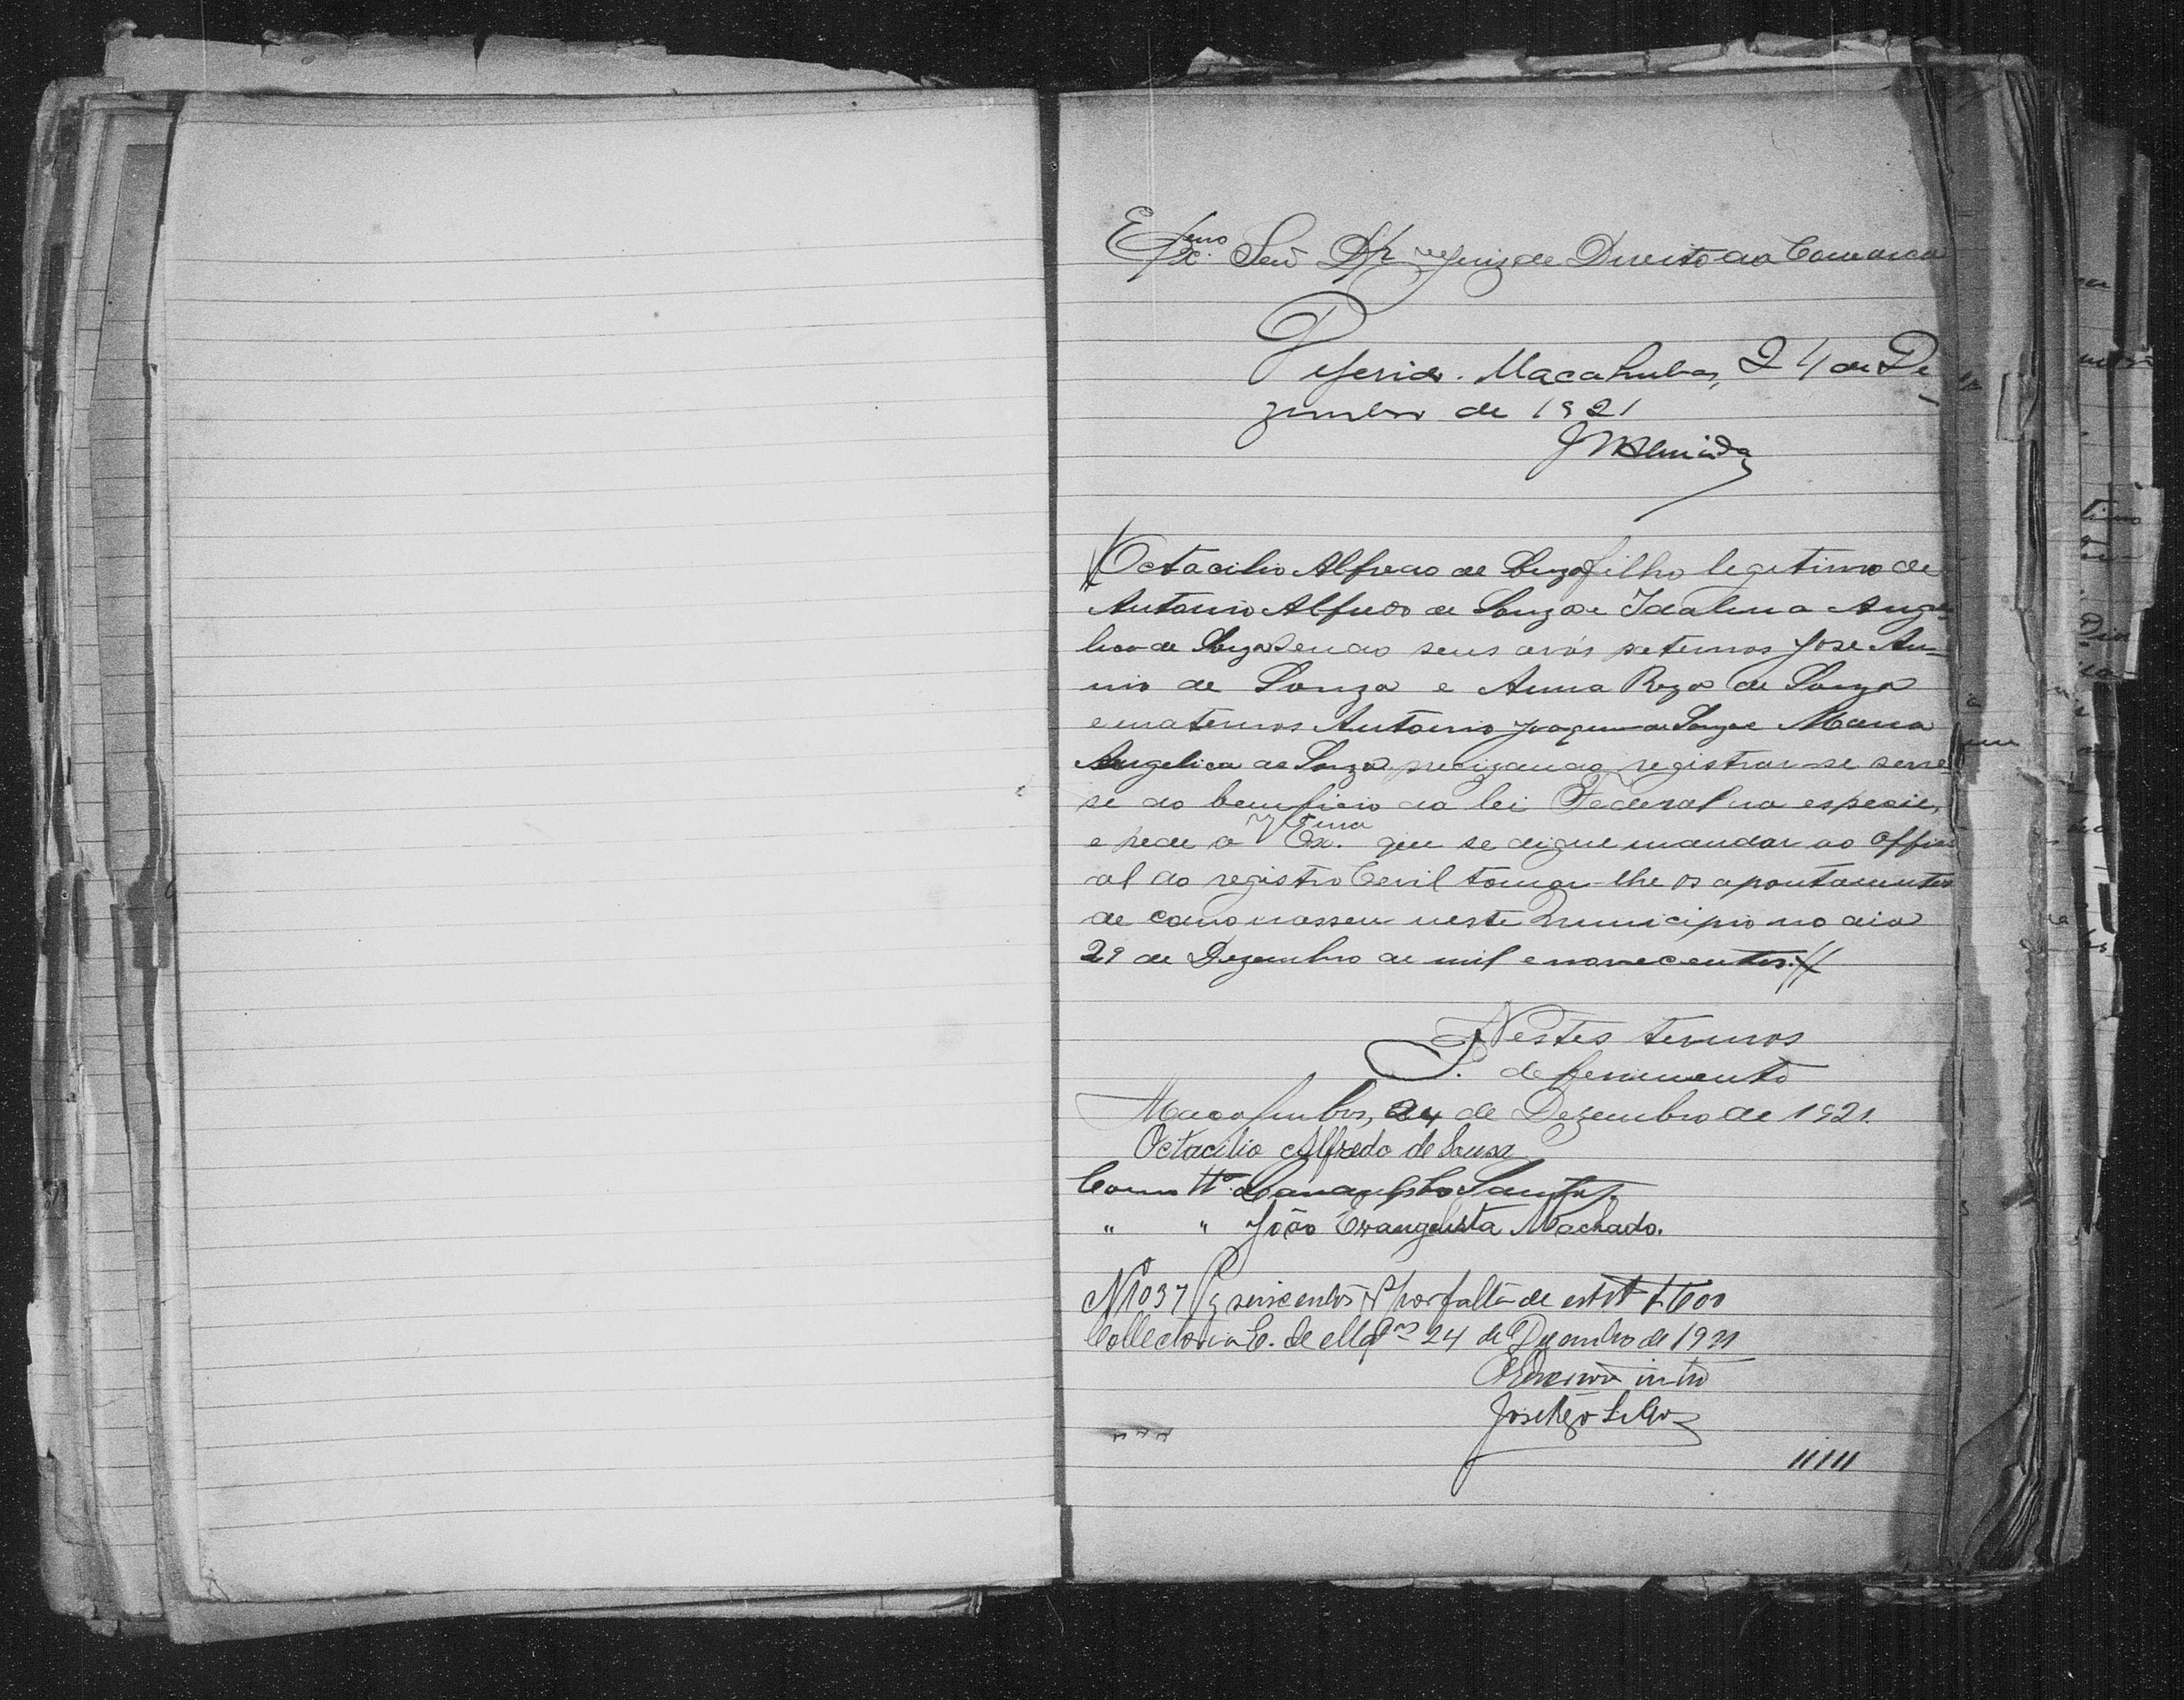 Exmo. Senr. Dr. Juiz de Direito da Comarca
Deferido. Macahubas, 24 de De
zembro de 1921
JMAlmeida
Octacilio Alfredo de Souza filho legitimo de
Antonio Alfredo de Souza e Idalina Ange
lica de Souza sendo seus avós paternos José An=
nio de Souza e Anna Roza de Souza
e maternos Antonio Joaquim de Souza e Maria
Angelica de Souza precizando registrar-se serve
se do beneficio da lei Federal na especie,
e pede a V Exma. que se digne mandar ao Offici
al do registro Cevil tomar-lhe os apontamentos
de como nasseu neste municipio no dia
29 de Dezembro de mil e novecentos.
Nestes termos
P. defferimento
Macahubas, 24 de Dezembro de 1921.
Octacilio Alfredo de Sousa
Como tta.
" " João Evangelista Machado.
Nº 1037 Pg seiscentos rs por falta de estª $600
Collectoria E. de 24 de Dezembro de 1921
O Escrivão intº
José